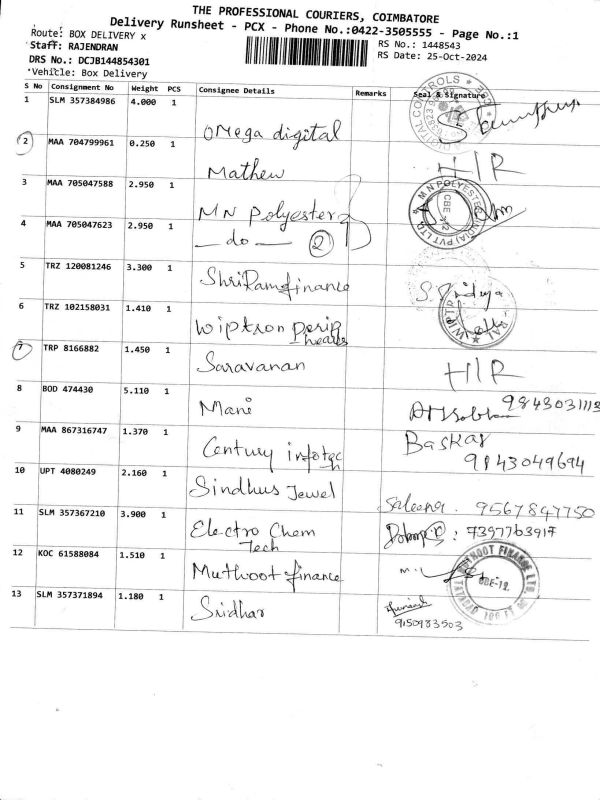 THE PROFESSIONAL COURIERS, COIMBATORE
Delivery Runsheet - PCX - Phone No.:0422-3505555 - Page No.:1
Route: BOX DELIVERY x
RS No.: 1448543
Staff: RAJENDRAN
RS Date: 25-Oct-2024
DRS No.: DCJB144854301
Vehicle: Box Delivery
S No Consignment No Weight PCS Consignee Details Remarks Seal & Signature
1 SLM 357384986 4.000 1 Omega digital
2 MAA 704799961 0.250 1 Mathew H/R
3 MAA 705047588 2.950 1 MN Polyester
4 MAA 705047623 2.950 1 — do — 2
5 TRZ 120081246 3.300 1 ShriRam finance
6 TRZ 102158031 1.410 1 Wiptron
7 TRP 8166882 1.450 1 Saravanan H/R
8 BOD 474430 5.110 1 Mani 9843031113
9 MAA 867316747 1.370 1 Century infotech Baskar
9843049694
10 UPT 4080249 2.160 1 Sindhus Jewel Saleena. 9567847750
11 SLM 357367210 3.900 1 Electro Chem : 7397763917
Tech
12 KOC 61588084 1.510 1 Muthoot finance
13 SLM 357371894 1.180 1 Sridhar
9150983503